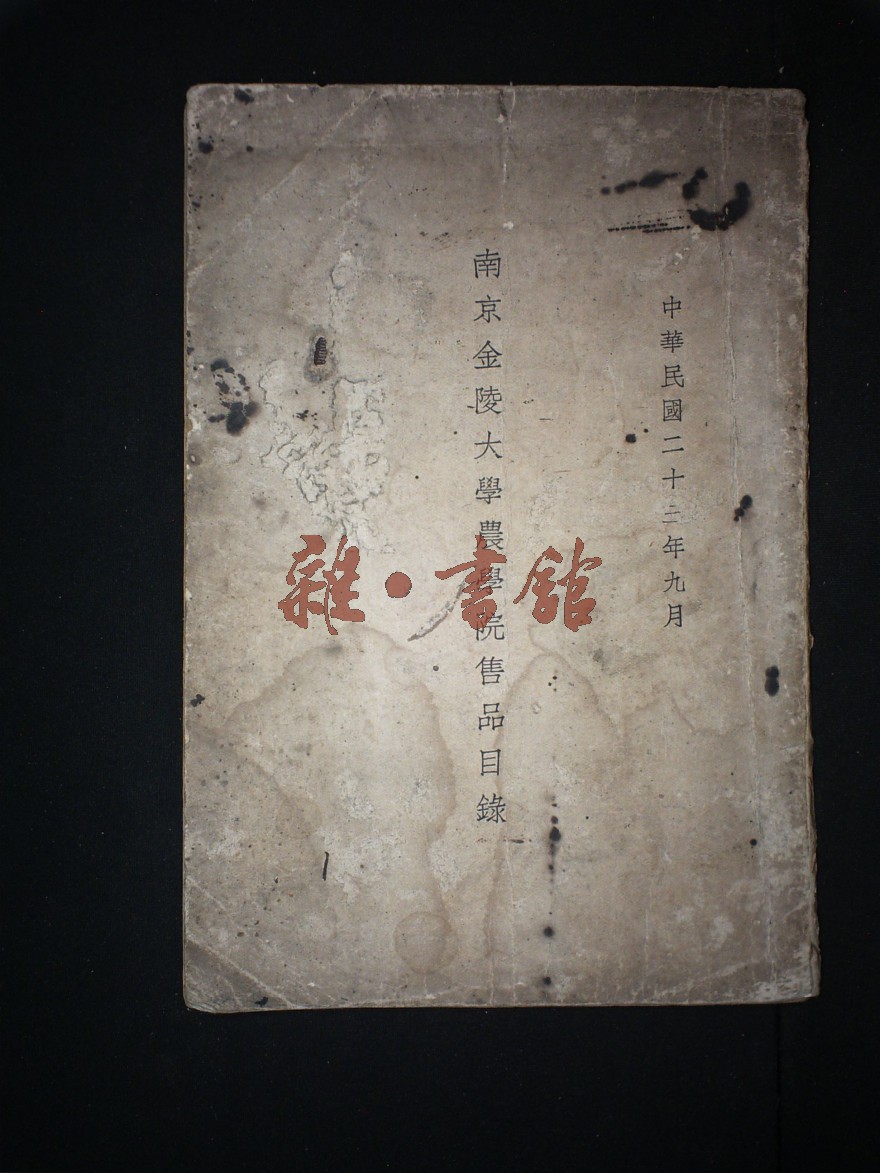 中華民國二十三年九月
南京金陵大學農學院售品目錄
雜·書館